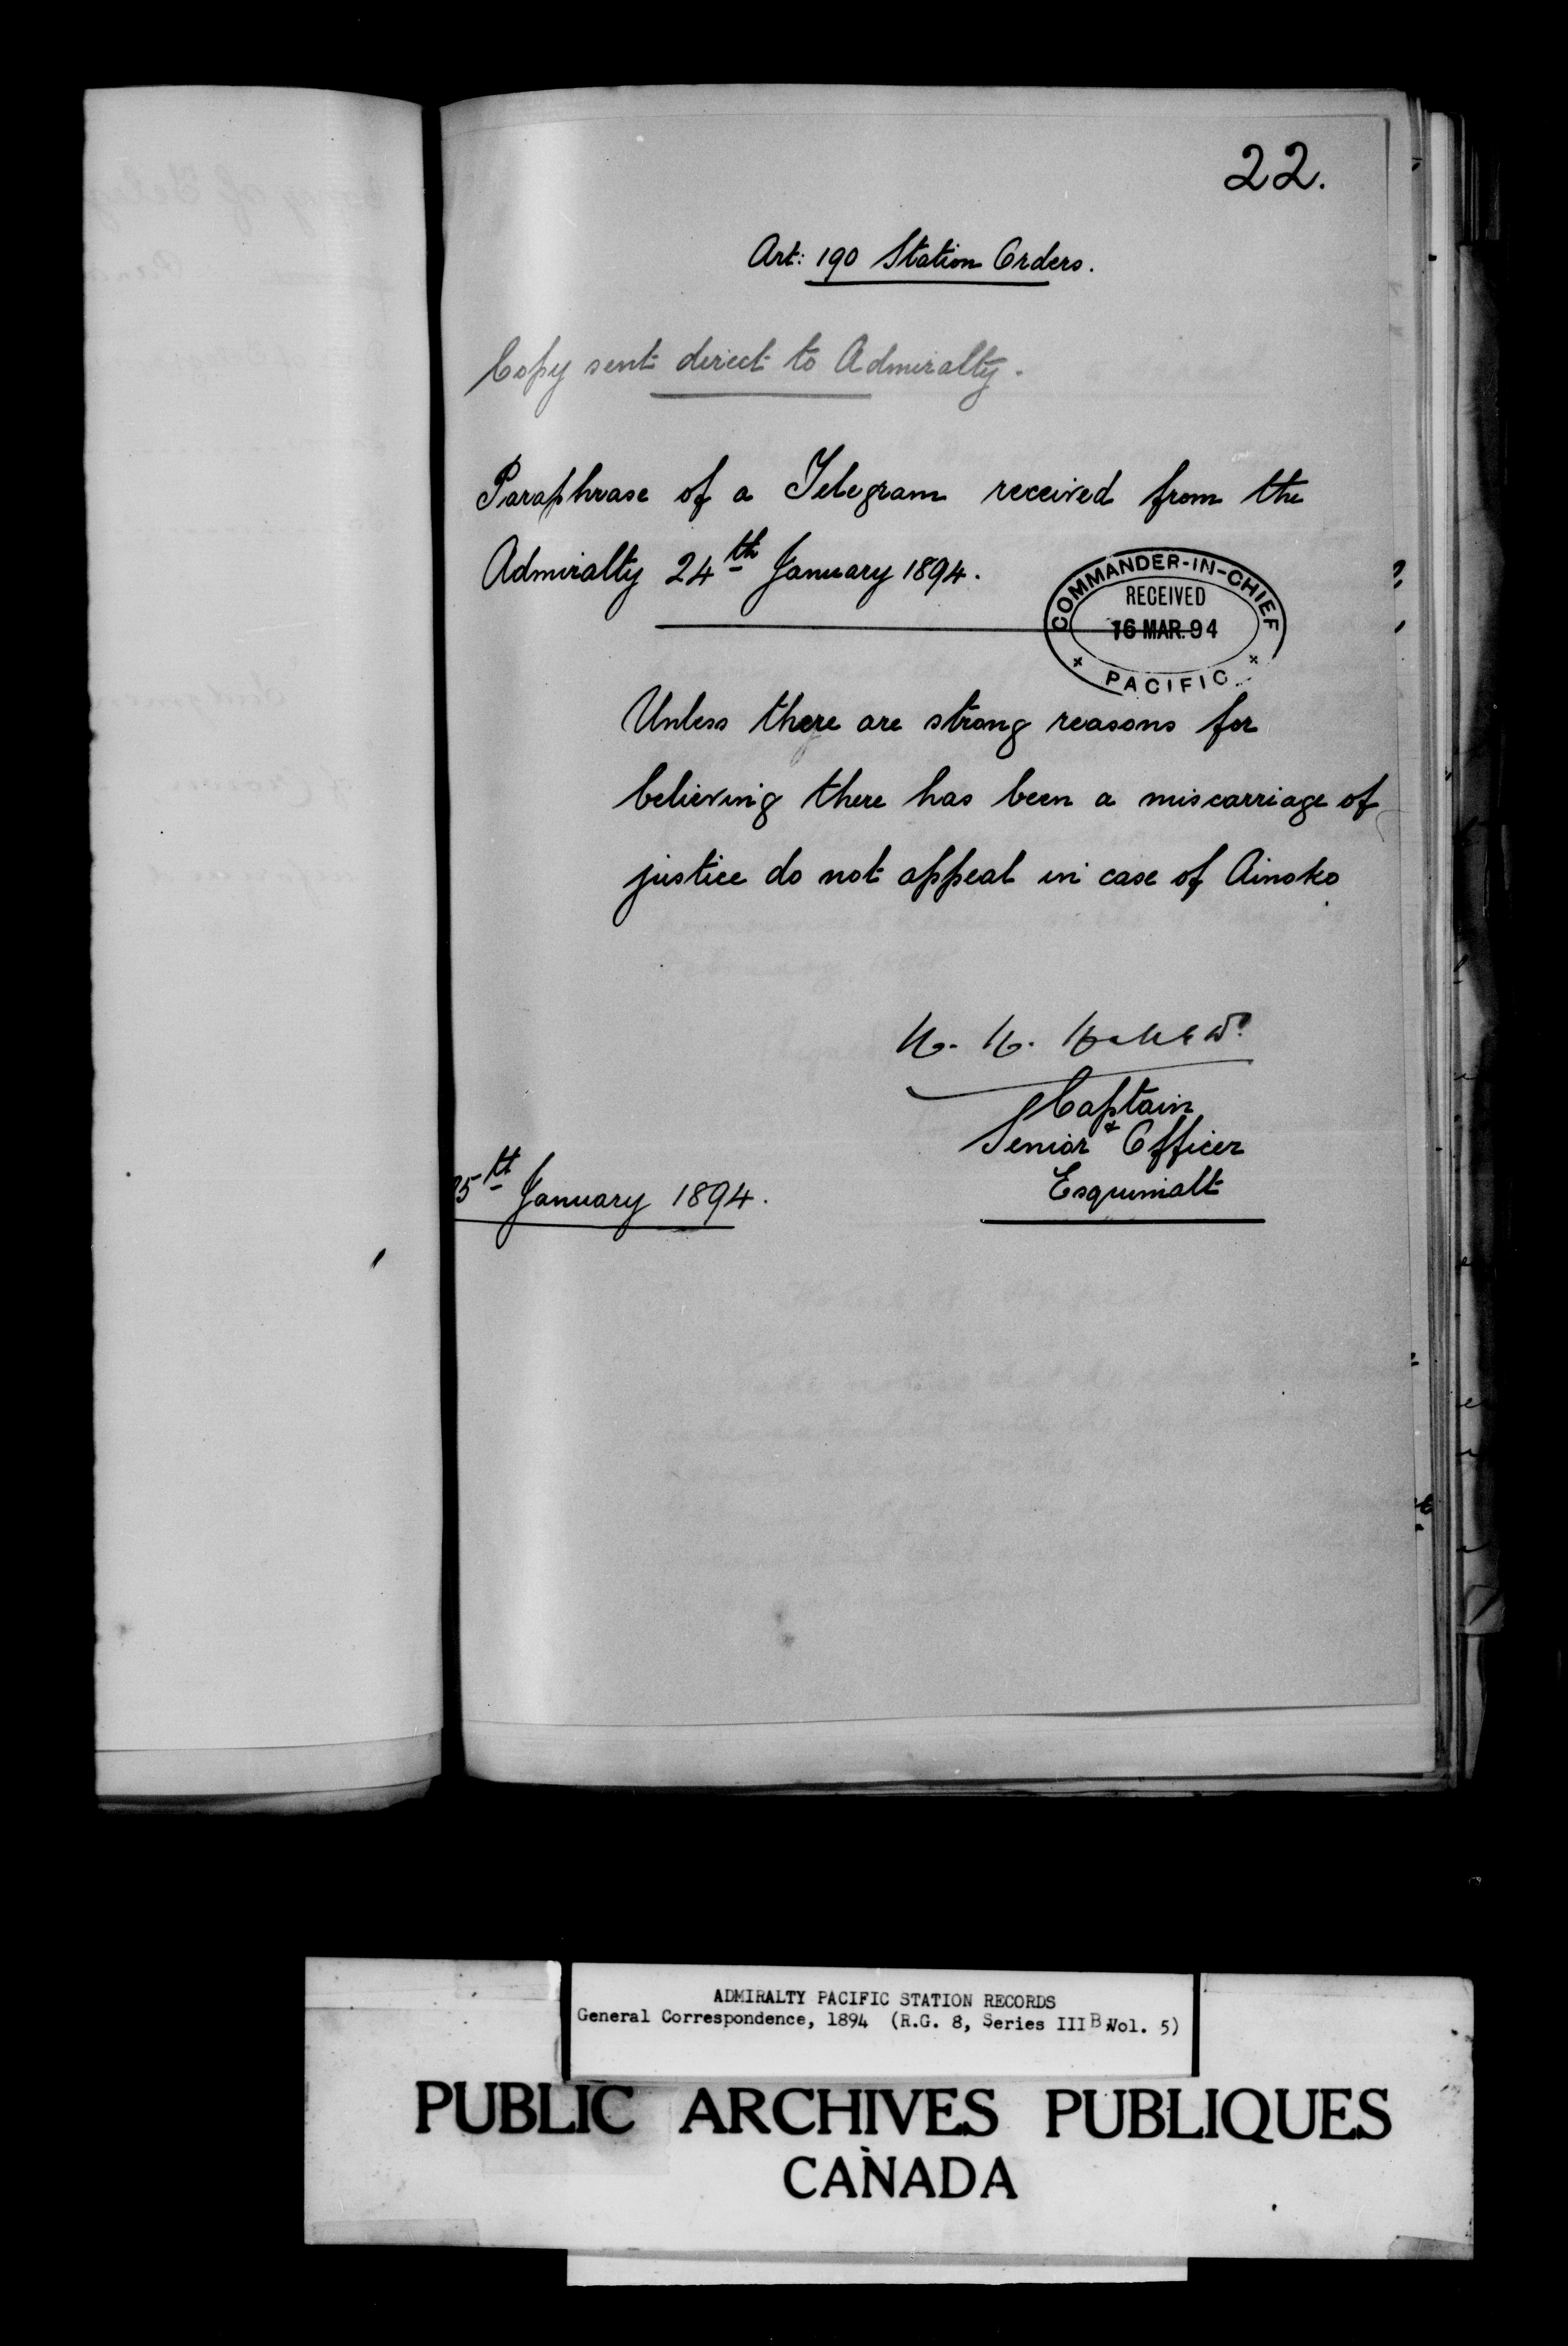 22.
Art: 190 Station Orders.
Copy sent direct to Admiralty.
Paraphrase of a Telegram received from the
Admiralty 24th January 1894.
COMMANDER-IN-CHIEF
RECEIVED
16 MAR. 94
PACIFIC
Unless there are strong reasons for
believing there has been a miscarriage of
justice do not appeal in case of Ainoko
Captain
&
Senior Officer
Esquimalt
25th January 1894.
ADMIRALTY PACIFIC STATION RECORDS
General Correspondence, 1894 (R.G. 8, Series III B Vol. 5)
PUBLIC ARCHIVES PUBLIQUES
CANADA